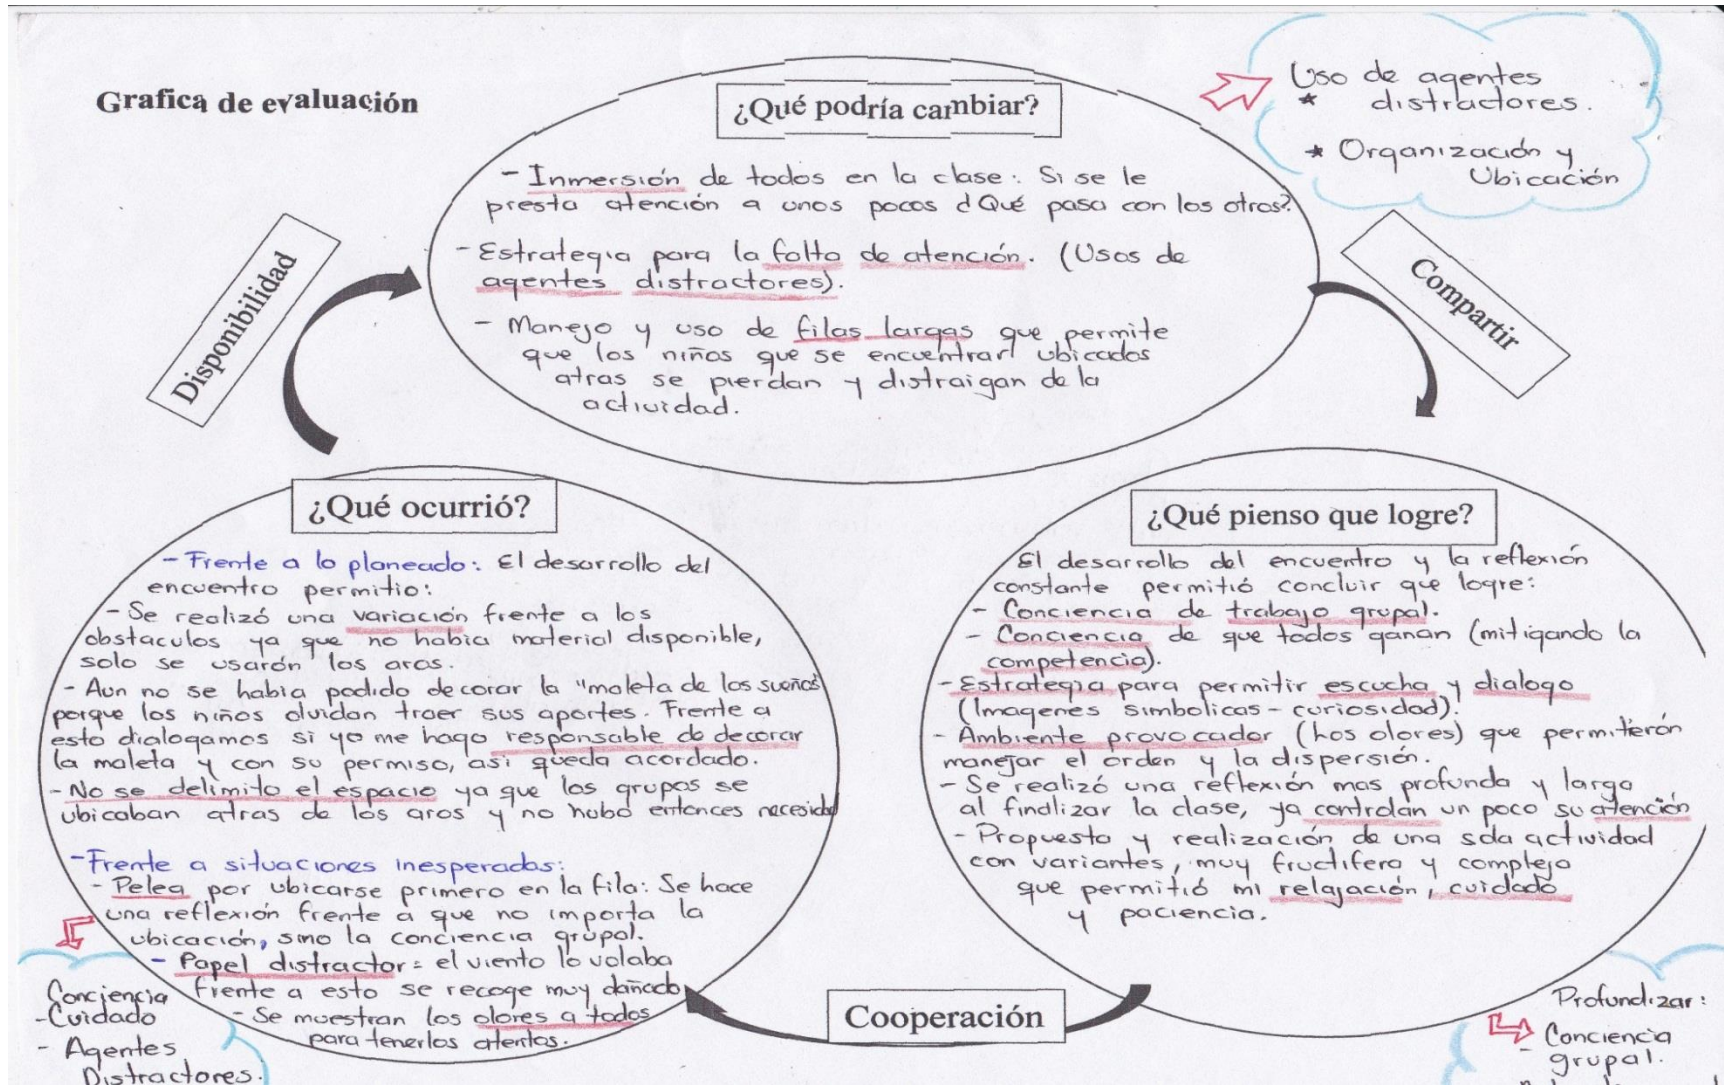 Grafica de evaluación
¿Qué podría cambiar?
- Inmersión de todos en la clase: Si se le
presta atención a unos pocos ¿Qué pasa con los otros?
- Estrategia para la falta de atención. (Usos de
agentes distractores).
- Manejo y uso de filas largas que permite
que los niños que se encuentran ubicados
atras se pierdan y distraigan de la
actividad.
Uso de agentes
* distractores.
* Organización y
Ubicación
Disponibilidad
Compartir
¿Qué ocurrió?
- Frente a lo planeado: El desarrollo del
encuentro permitio:
- Se realizó una variación frente a los
obstaculos ya que no habia material disponible,
solo se usarón los aros.
- Aun no se habia podido decorar la "maleta de los sueños"
porque los niños olvidan traer sus aportes. Frente a
esto dialogamos si yo me hago responsable de decorar
la maleta y con su permiso, asi queda acordado.
- No se delimito el espacio ya que los grupos se
ubicaban atras de los aros y no hubo entonces necesidad
- Frente a situaciones inesperadas:
- Pelea por ubicarse primero en la fila: Se hace
una reflexión frente a que no importa la
ubicación, sino la conciencia grupal.
- Papel distractor: el viento lo volaba
frente a esto se recoge muy dañado
- Se muestran los olores a todos
para tenerlos atentos.
Conciencia
- Cuidado
- Agentes
Distractores.
¿Qué pienso que logre?
El desarrollo del encuentro y la reflexión
constante permitió concluir que logre:
- Conciencia de trabajo grupal.
- Conciencia de que todos ganan (mitigando la
competencia).
- Estrategia para permitir escucha y dialogo
(Imagenes simbolicas - curiosidad).
- Ambiente provocador (Los olores) que permitierón
manejar el orden y la dispersión.
- Se realizó una reflexión mas profunda y larga
al finalizar la clase, ya controlan un poco su atención
- Propuesta y realización de una sola actividad
con variantes, muy fructifera y compleja
que permitió mi relajación, cuidado
y paciencia.
Cooperación
Profundizar:
- Conciencia
grupal.